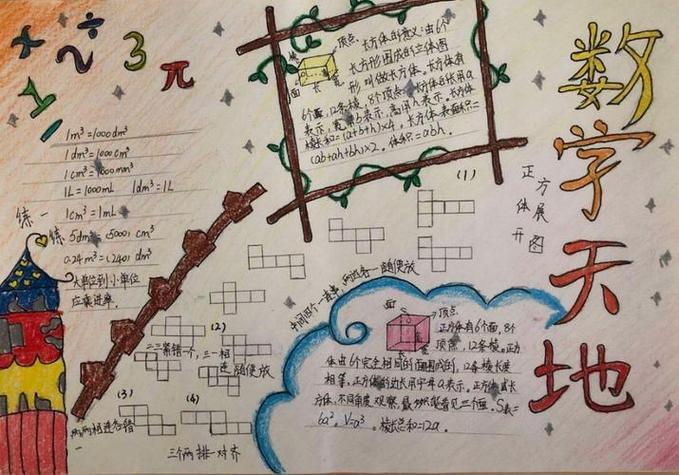 数学天地
÷
2
3
π
1
1m³=1000dm³
1dm³=1000cm³
1cm³=1000mm³
1L=1000mL 1dm³=1L
1cm³=1mL
练一练
5dm³=(5000)cm³
0.24m³=(240)dm³
大单位到小单位
应乘进率.
顶点
棱
面
长
长方体的意义:由6个
长方形围成的立体图
形叫做长方体。长方体有
6个面,12条棱,8个顶点。
表示,宽用b表示,高用h表示,长方体
棱长和=(a+b+h)×4,长方体表面积=
(ab+ah+bh)×2。体积=abh.
正方
体展
开图
(1)
中间四个一连串,两边各一随便放
(2)
二三紧错一个,三一相
连随便放
(3)
两两相连各错
一
(4)
三个两排一对齐
面
顶点
正方体有6个面,8个
顶点,12条棱。正方
体由6个完全相同的面围成的,12条棱长度
相等。正方体的边长用字母a表示。正方体或长
方体,不同角度观察,最多只能看见三个面。S表=
6a²,V=a³。棱长总和=12a.